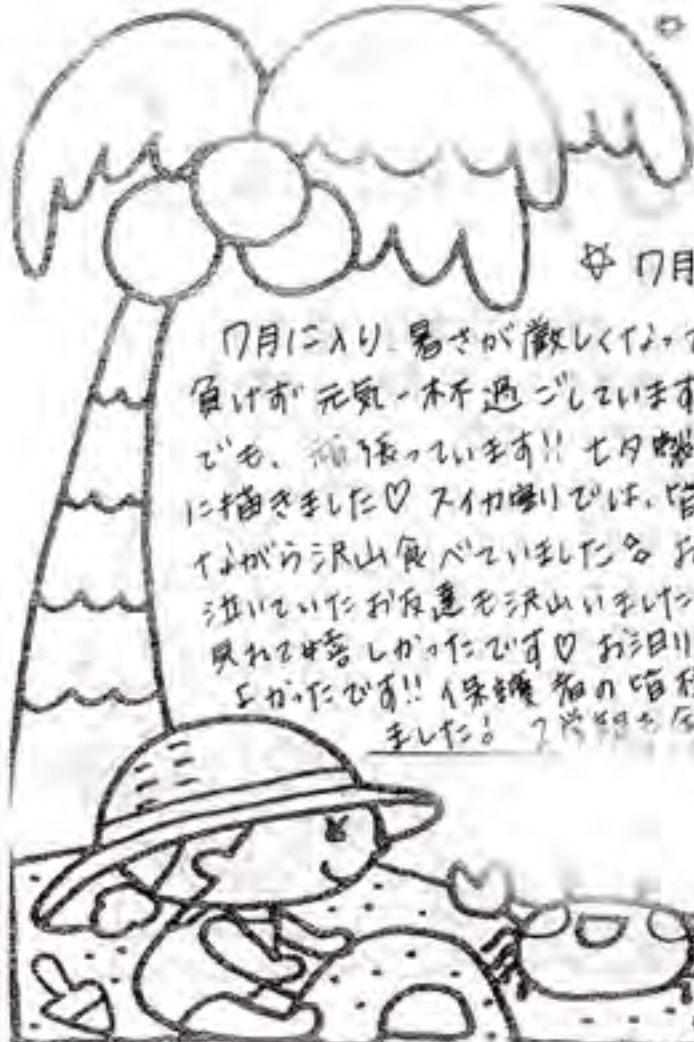 ☆ 7月
7月に入り、暑さが厳しくなって
負けず元気一杯過ごしています
でも、頑張っています!! 七夕
に描きました♡ スイカ割りでは、皆
ながら沢山食べていました お
泣いていたお友達も沢山いました
見れて嬉しかったです♡ お泊り
よかったです!! 保護者の皆様
ました! 2学期も